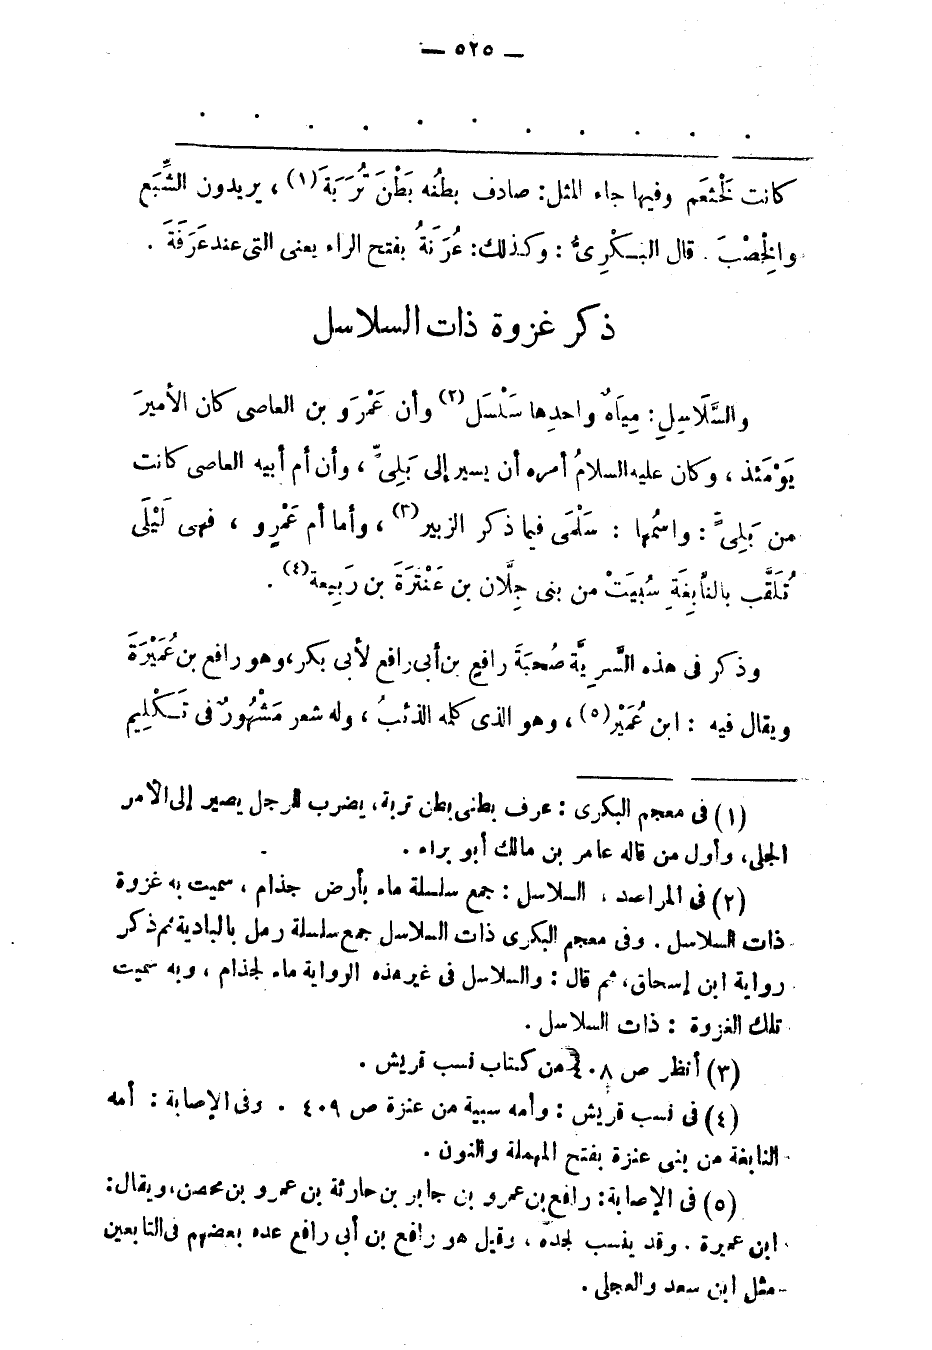 — ٥٢٥ —
. . . . . . . . . . .
كانت لخَثْعَم وفيها جاء المثل: صادف بطنُه بَطْنَ تُرَبَةَ (١) ، يريدون الشِّبَع
والخِصْبَ . قال البَكْرِىُّ : وكذلك: عُرَنَةُ بفتح الراء يعنى التى عند عَرَفَةَ .
ذكر غزوة ذات السلاسل
والسَّلَاسِلِ : مِيَاهٌ واحدها سَلْسَل (٢) وأن عَمْرَو بن العاصى كان الأميرَ
يَوْمَئذ ، وكان عليه السلامُ أمره أن يسير إلى بَلِىٍّ ، وأن أم أبيه العاصى كانت
من بَلِىٍّ : واسمُها : سَلْمَى فيما ذكر الزبير (٣) ، وأما أم عَمْرٍو ، فهى لَيْلَى
تُلَقَّب بالنَّابِغَةِ سُبِيَتْ من بنى جِلَّان بن عَنْتَرَةَ بن رَبِيعة (٤) .
وذكر فى هذه السَّرِيَّة صُحبَةَ رافعِ بن أبى رافع لأبى بكر ، وهو رافع بن عُمَيْرَةَ
ويقال فيه : ابن عُمَيْر (٥) ، وهو الذى كلمه الذئبُ ، وله شعر مَشْهُورٌ فى تَكْلِيمِ
(١) فى معجم البكرى : عرف بطنى بطن تربة ، يضرب للرجل يصير إلى الأمر
الجلى ، وأول من قاله عامر بن مالك أبو براء .
(٢) فى المراصد ، السلاسل : جمع سلسلة ماء بأرض جذام ، سميت به غزوة
ذات السلاسل . وفى معجم البكرى ذات السلاسل جمع سلسلة رمل بالبادية ثم ذكر
رواية ابن إسحاق ، ثم قال : والسلاسل فى غير هذه الرواية ماء لجذام ، وبه سميت
تلك الغزوة : ذات السلاسل .
(٣) أنظر ص ٤٠٨ من كتاب نسب قريش .
(٤) فى نسب قريش : وأمه سبية من عنزة ص ٤٠٩ . وفى الإصابة : أمه
النابغة من بنى عنزة بفتح المهملة والنون .
(٥) فى الإصابة : رافع بن عمرو بن جابر بن حارثة بن عمرو بن محصن ، ويقال :
ابن عميرة . وقد ينسب لجده ، وقيل هو رافع بن أبى رافع عده بعضهم فى التابعين
مثل ابن سعد والعجلى .